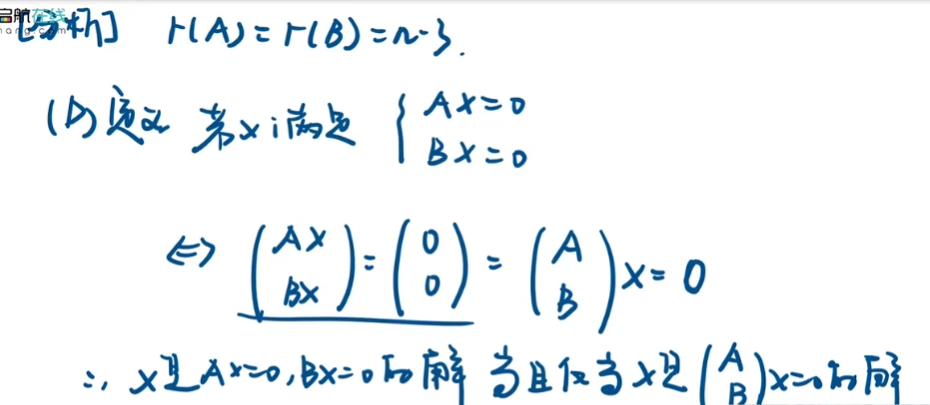 启航在线
[分析] r(A)=r(B)=n-3.
(1) 定义 若x满足 { Ax=0
Bx=0
⇔ (Ax Bx) = (0 0) = (A B) x = 0
∴ x是Ax=0, Bx=0的解 当且仅当x是(A B)x=0的解